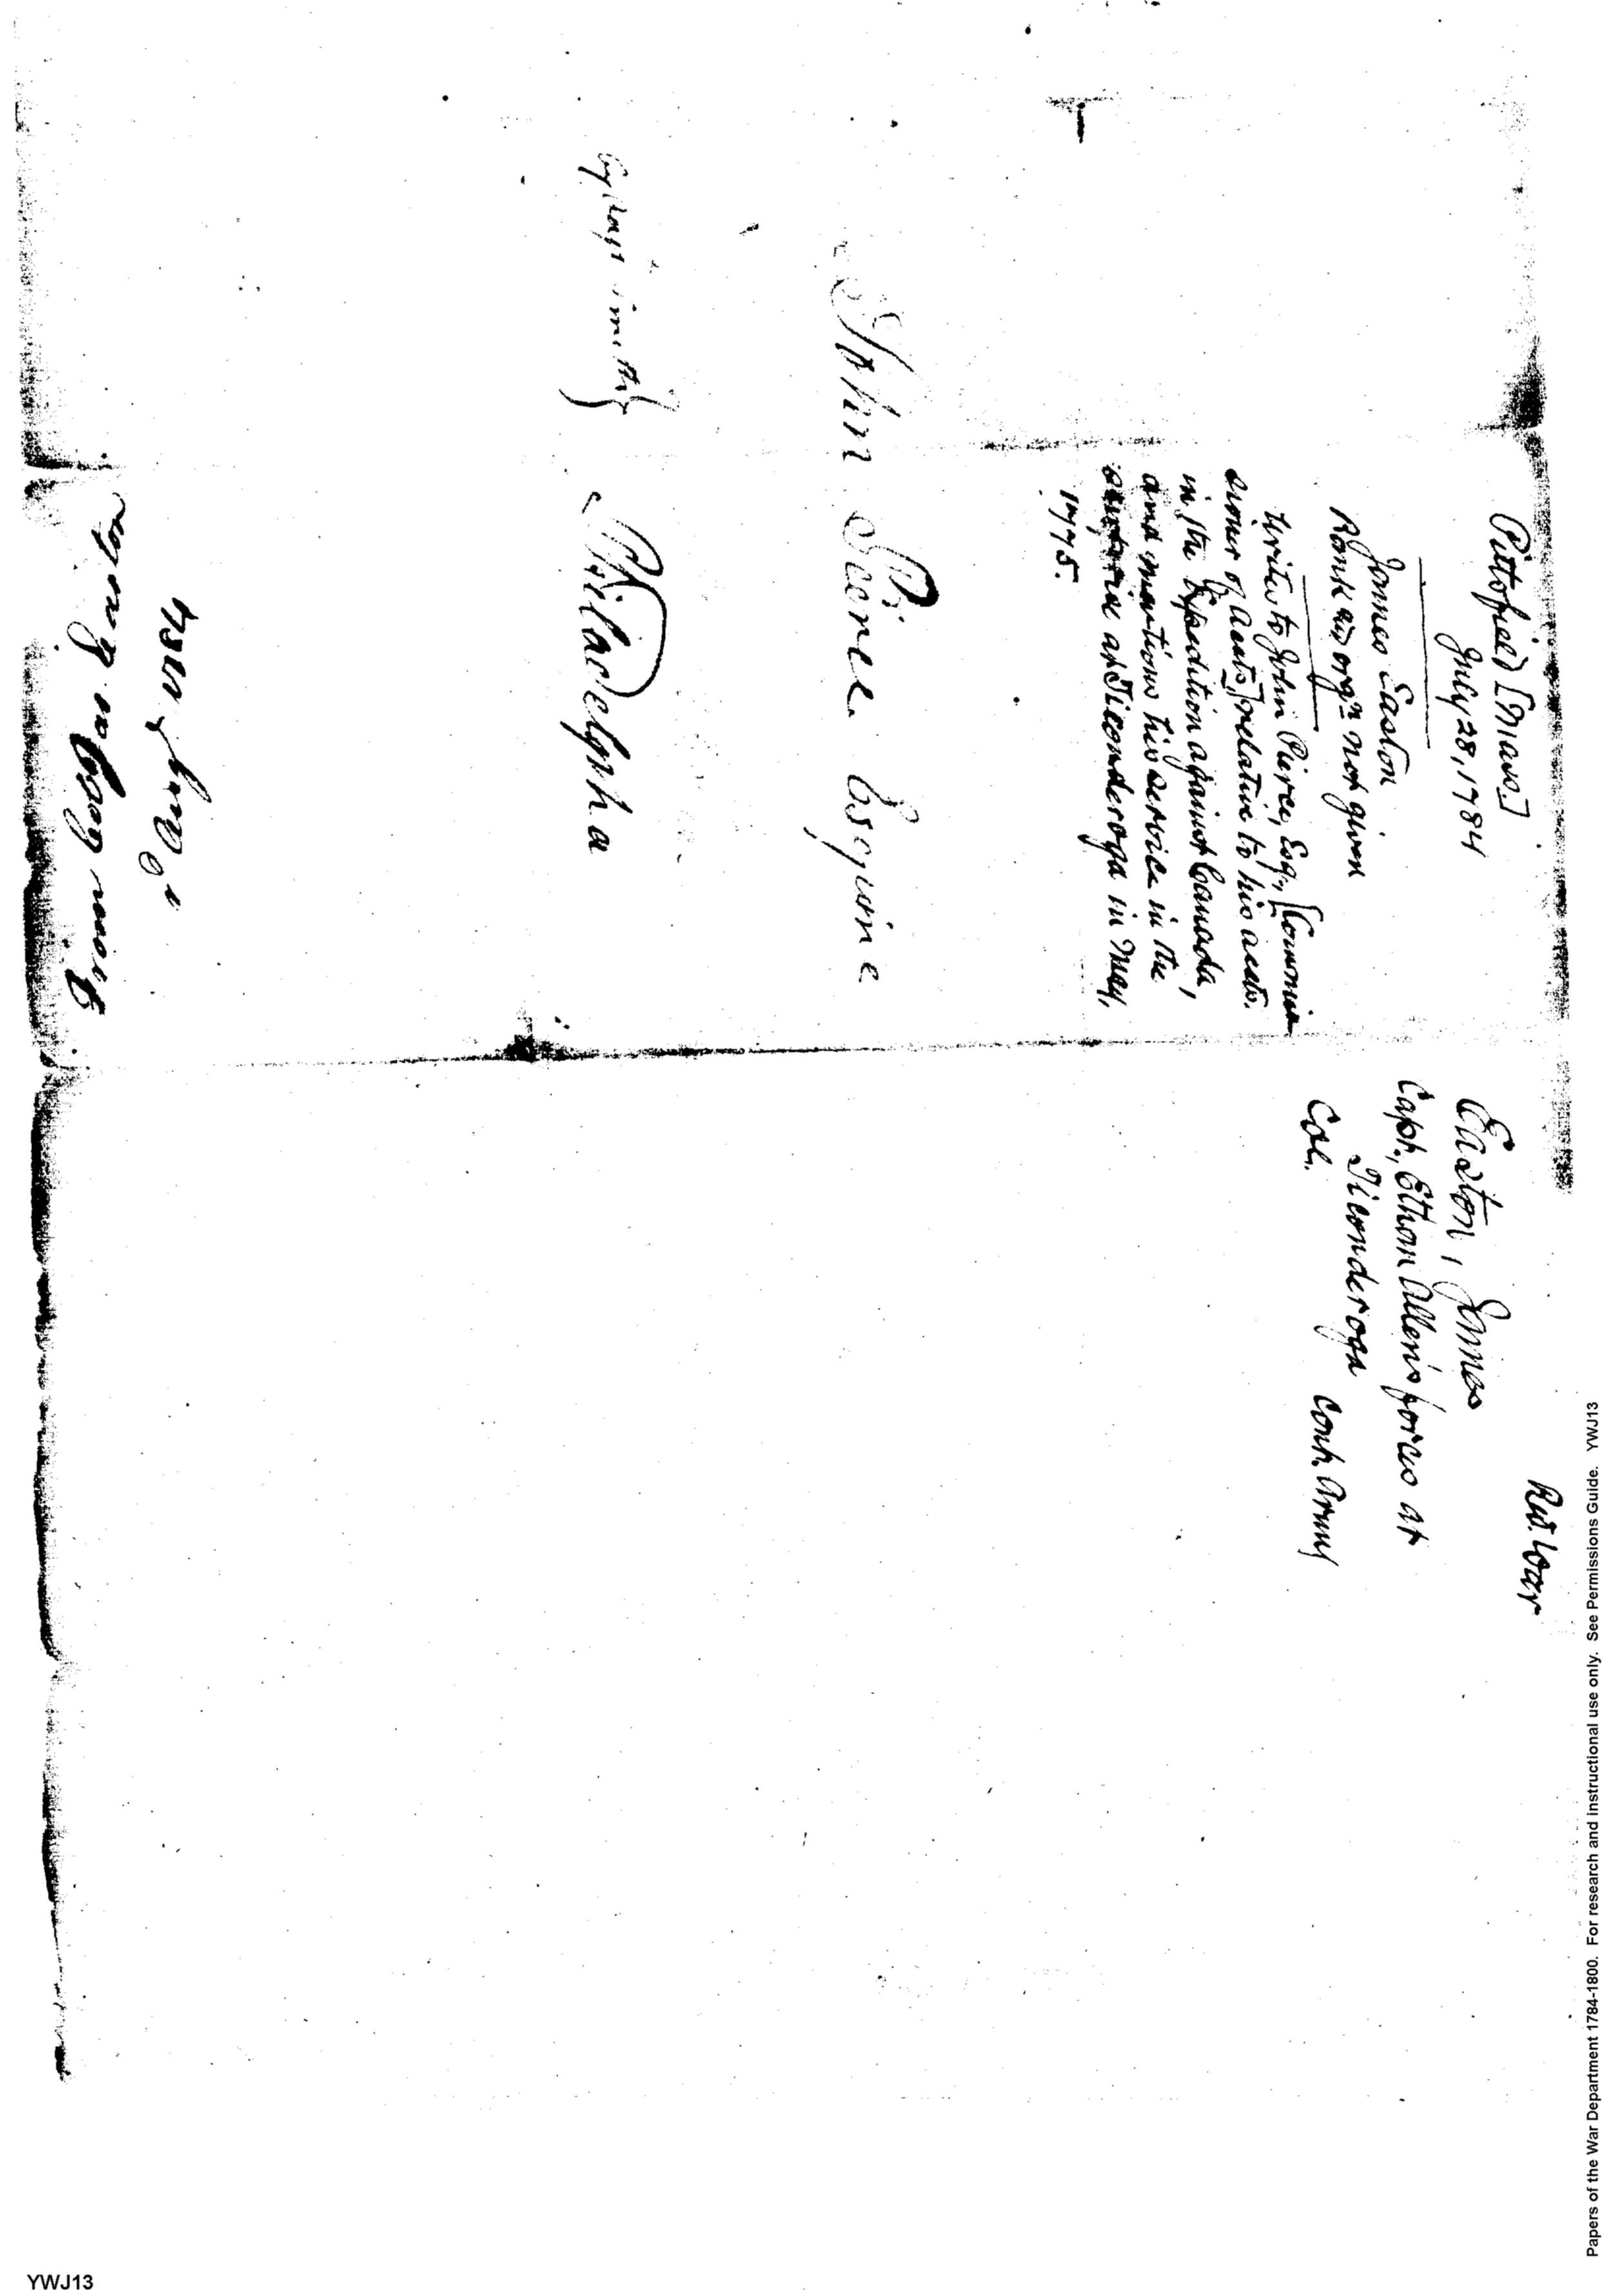 Rev. War
Easton, James
Capt. Ethan Allen's forces at
Ticonderoga
Col. Cont. Army
Pittsfield [Mass.]
July 28, 1784
James Easton
Rank and orgn. not given
Writes to John Pierce, Esq., [Commis-
sioner of Accts.] relative to his accts.
in the Expedition against Canada,
and mentions his service in the
at Ticonderoga in May,
1775.
John Pierce Esquire
Philadelphia
1784
Papers of the War Department 1784-1800. For research and instructional use only. See Permissions Guide. YWJ13
YWJ13